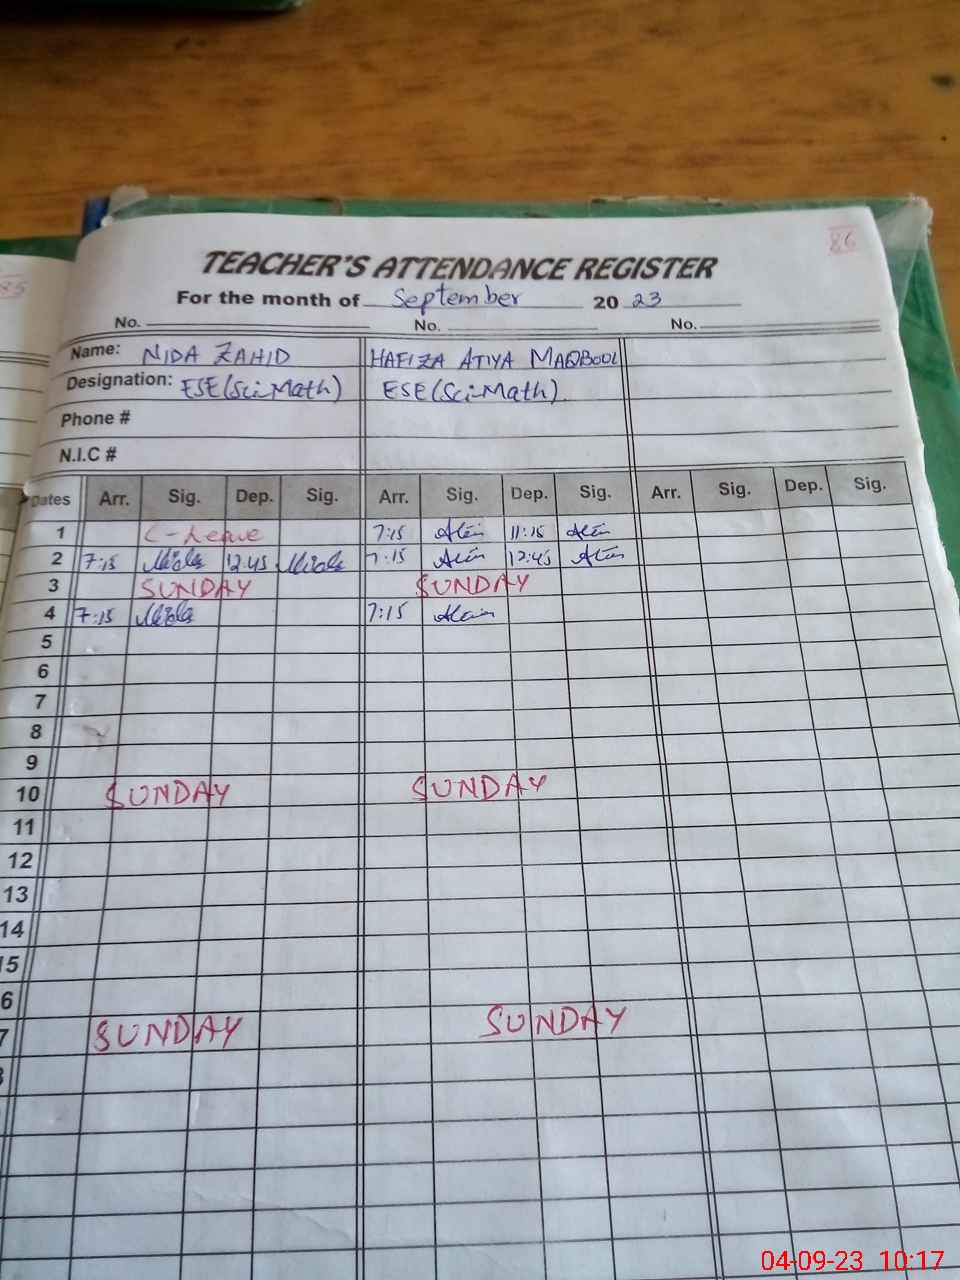 86
85
TEACHER'S ATTENDANCE REGISTER
For the month of September 20 23
No. No. No.
Name: NIDA ZAHID HAFIZA ATIYA MAQBOOL
Designation: ESE(Sci-Math) ESE(Sci-Math)
Phone #
N.I.C #
Dates Arr. Sig. Dep. Sig. Arr. Sig. Dep. Sig. Arr. Sig. Dep. Sig.
1 C-Leave 7:15 11:15
2 7:15 12:45 7:15 12:45
3 SUNDAY SUNDAY
4 7:15 7:15
5
6
7
8
9
10 SUNDAY SUNDAY
11
12
13
14
15
6
7 SUNDAY SUNDAY
04-09-23 10:17